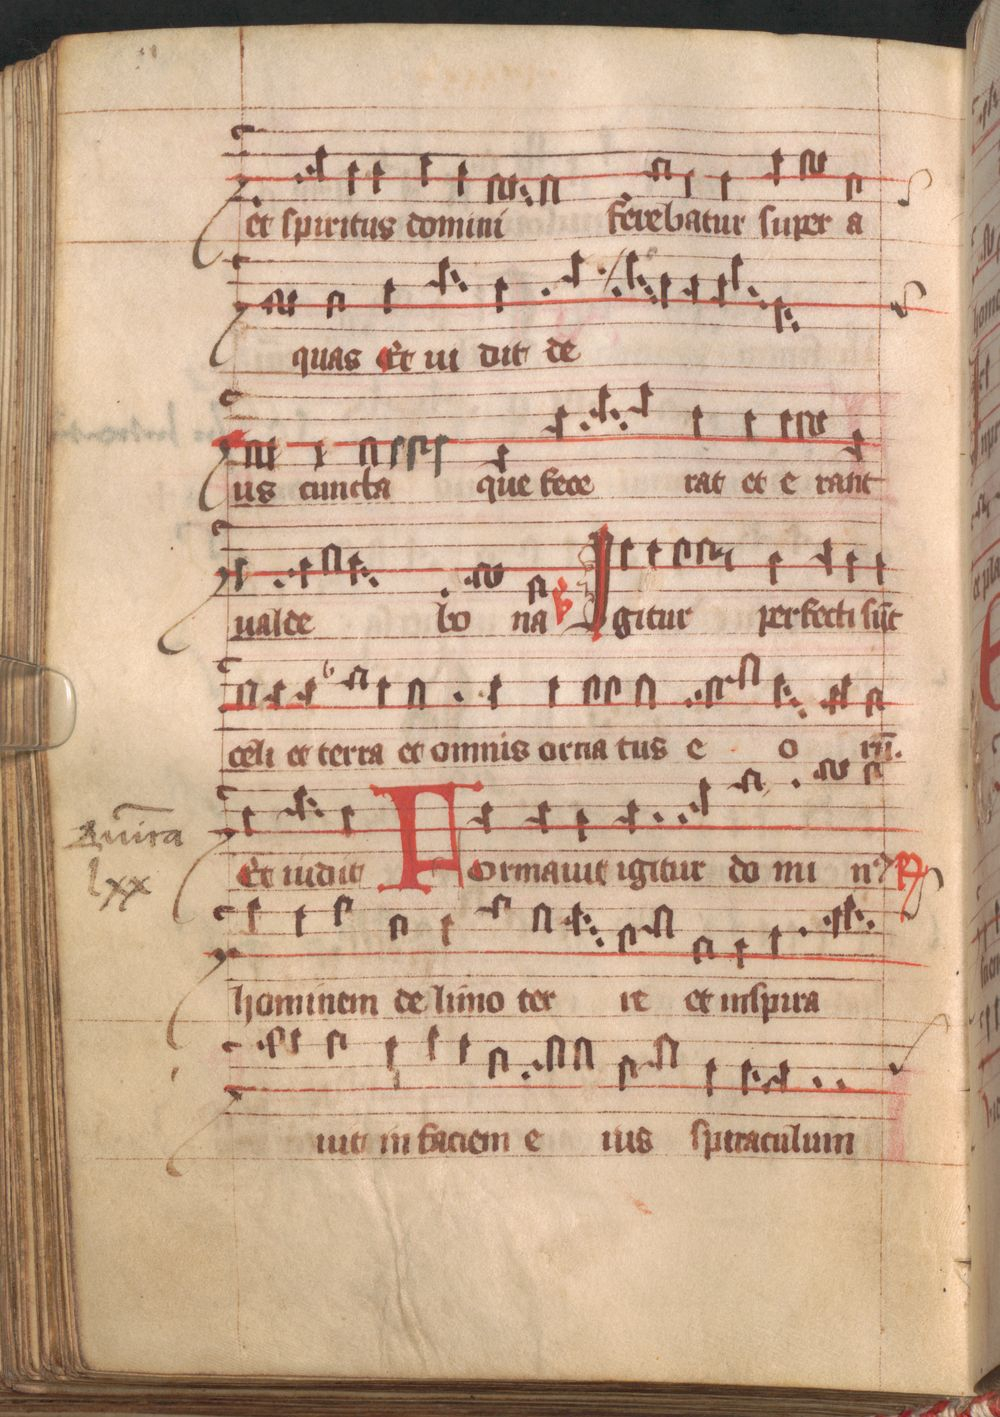 et spiritus domini ferebatur super a
quas Et ui dit de
us cuncta que fece rat et e rant
ualde bo na ℣ Igitur perfecti sūt
celi et terra et omnis orna tus e o rū.
Et uidit Formauit igitur do mi n9 ℟
hominem de limo ter re et inspira
uit in faciem e ius spiraculum
lxx